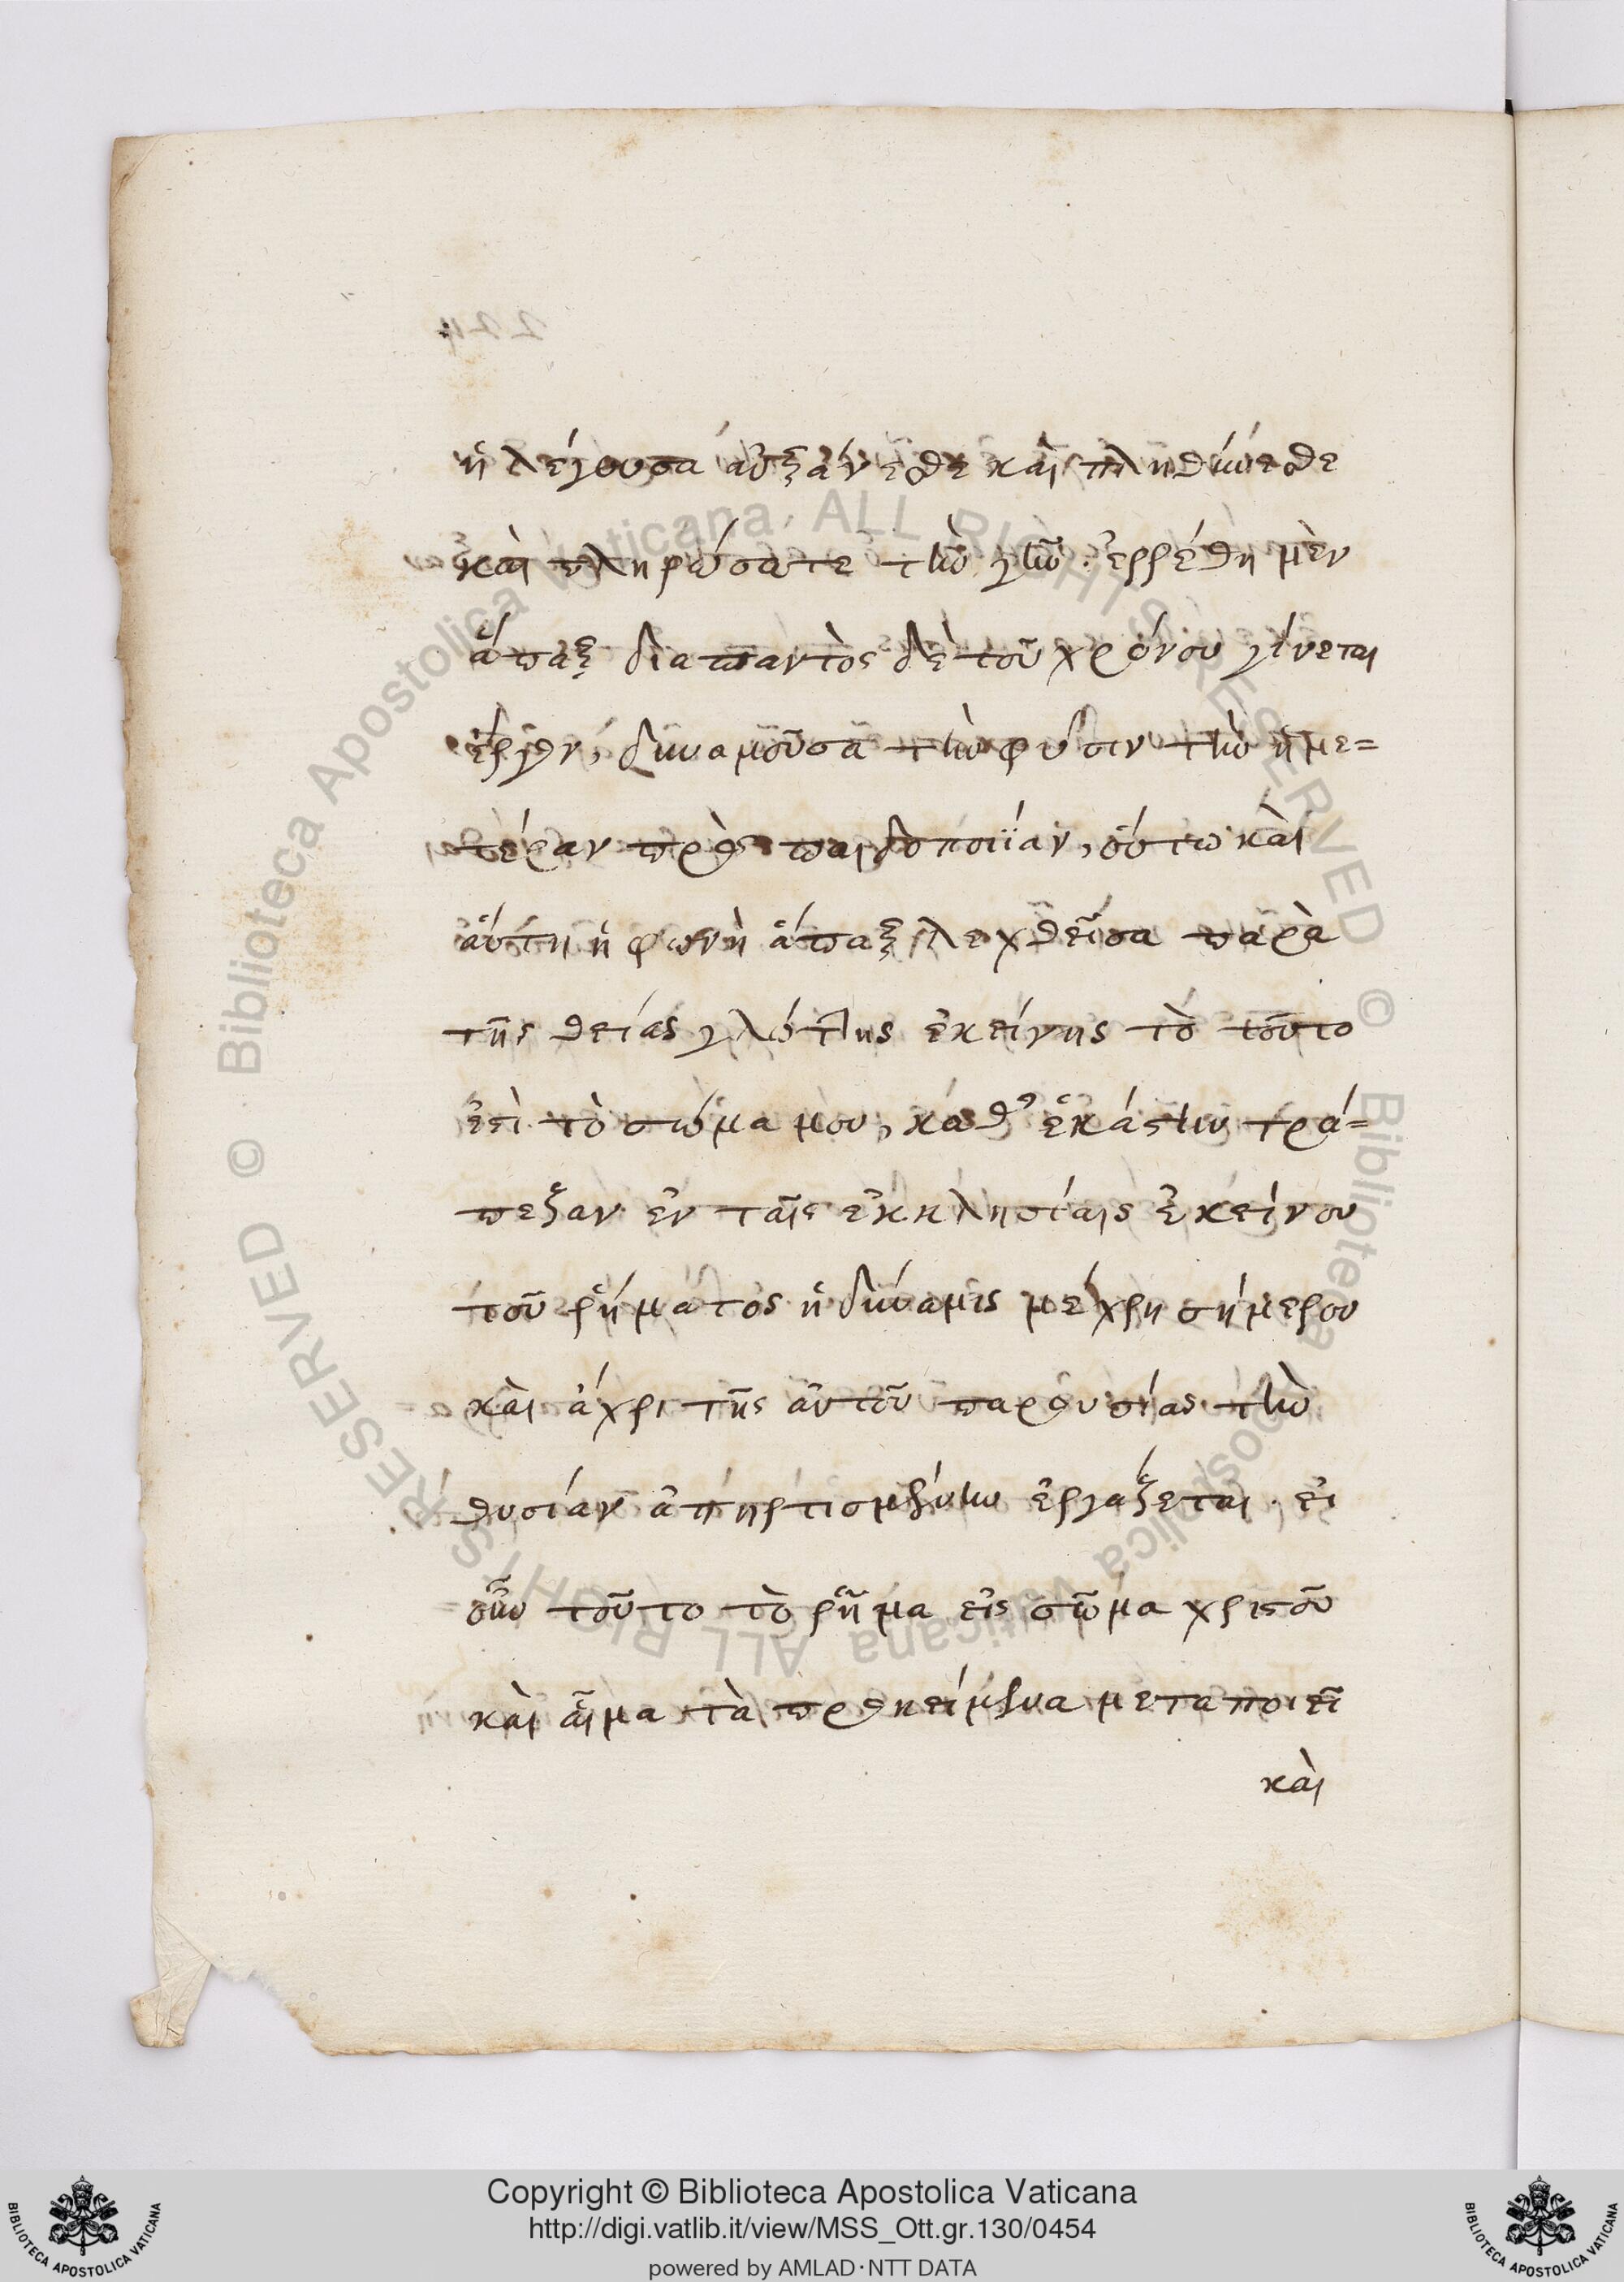 ἡ λέγουσα αὐξάνεσθε καὶ πληθύνεσθε
καὶ πληρώσατε τὴν γῆν. ἐρρέθη μὲν
ἅπαξ διαπαντὸς δὲ τοῦ χρόνου γίνεται
ἔργον, δυναμοῦσα τὴν φύσιν τὴν ἡμε=
τέραν πρὸς παιδοποιΐαν, οὕτω καὶ
αὕτη ἡ φωνὴ ἅπαξ λεχθεῖσα παρὰ
τῆς θείας γλώττης ἐκείνης τὸ τοῦτο
ἐστὶ τὸ σῶμα μου, καθ' ἑκάστην τρά=
πεζαν ἐν ταῖς ἐκκλησίαις ἐκείνου
τοῦ ῥήματος ἡ δύναμις μέχρη σήμερου
καὶ ἄχρι τῆς αὐτοῦ παρουσίας τὴν
θυσίαν ἀπηρτισμένην ἐργάζεται. εἰ
οὖν τοῦτο τὸ ῥῆμα εἰς σῶμα χριστοῦ
καὶ αἷμα τὰ προκείμενα μεταποιεῖ
καὶ
Copyright © Biblioteca Apostolica Vaticana
http://digi.vatlib.it/view/MSS_Ott.gr.130/0454
powered by AMLAD·NTT DATA
BIBLIOTECA APOSTOLICA VATICANA
BIBLIOTECA APOSTOLICA VATICANA
© Biblioteca Apostolica Vaticana ALL RIGHTS RESERVED
© Biblioteca Apostolica Vaticana ALL RIGHTS RESERVED